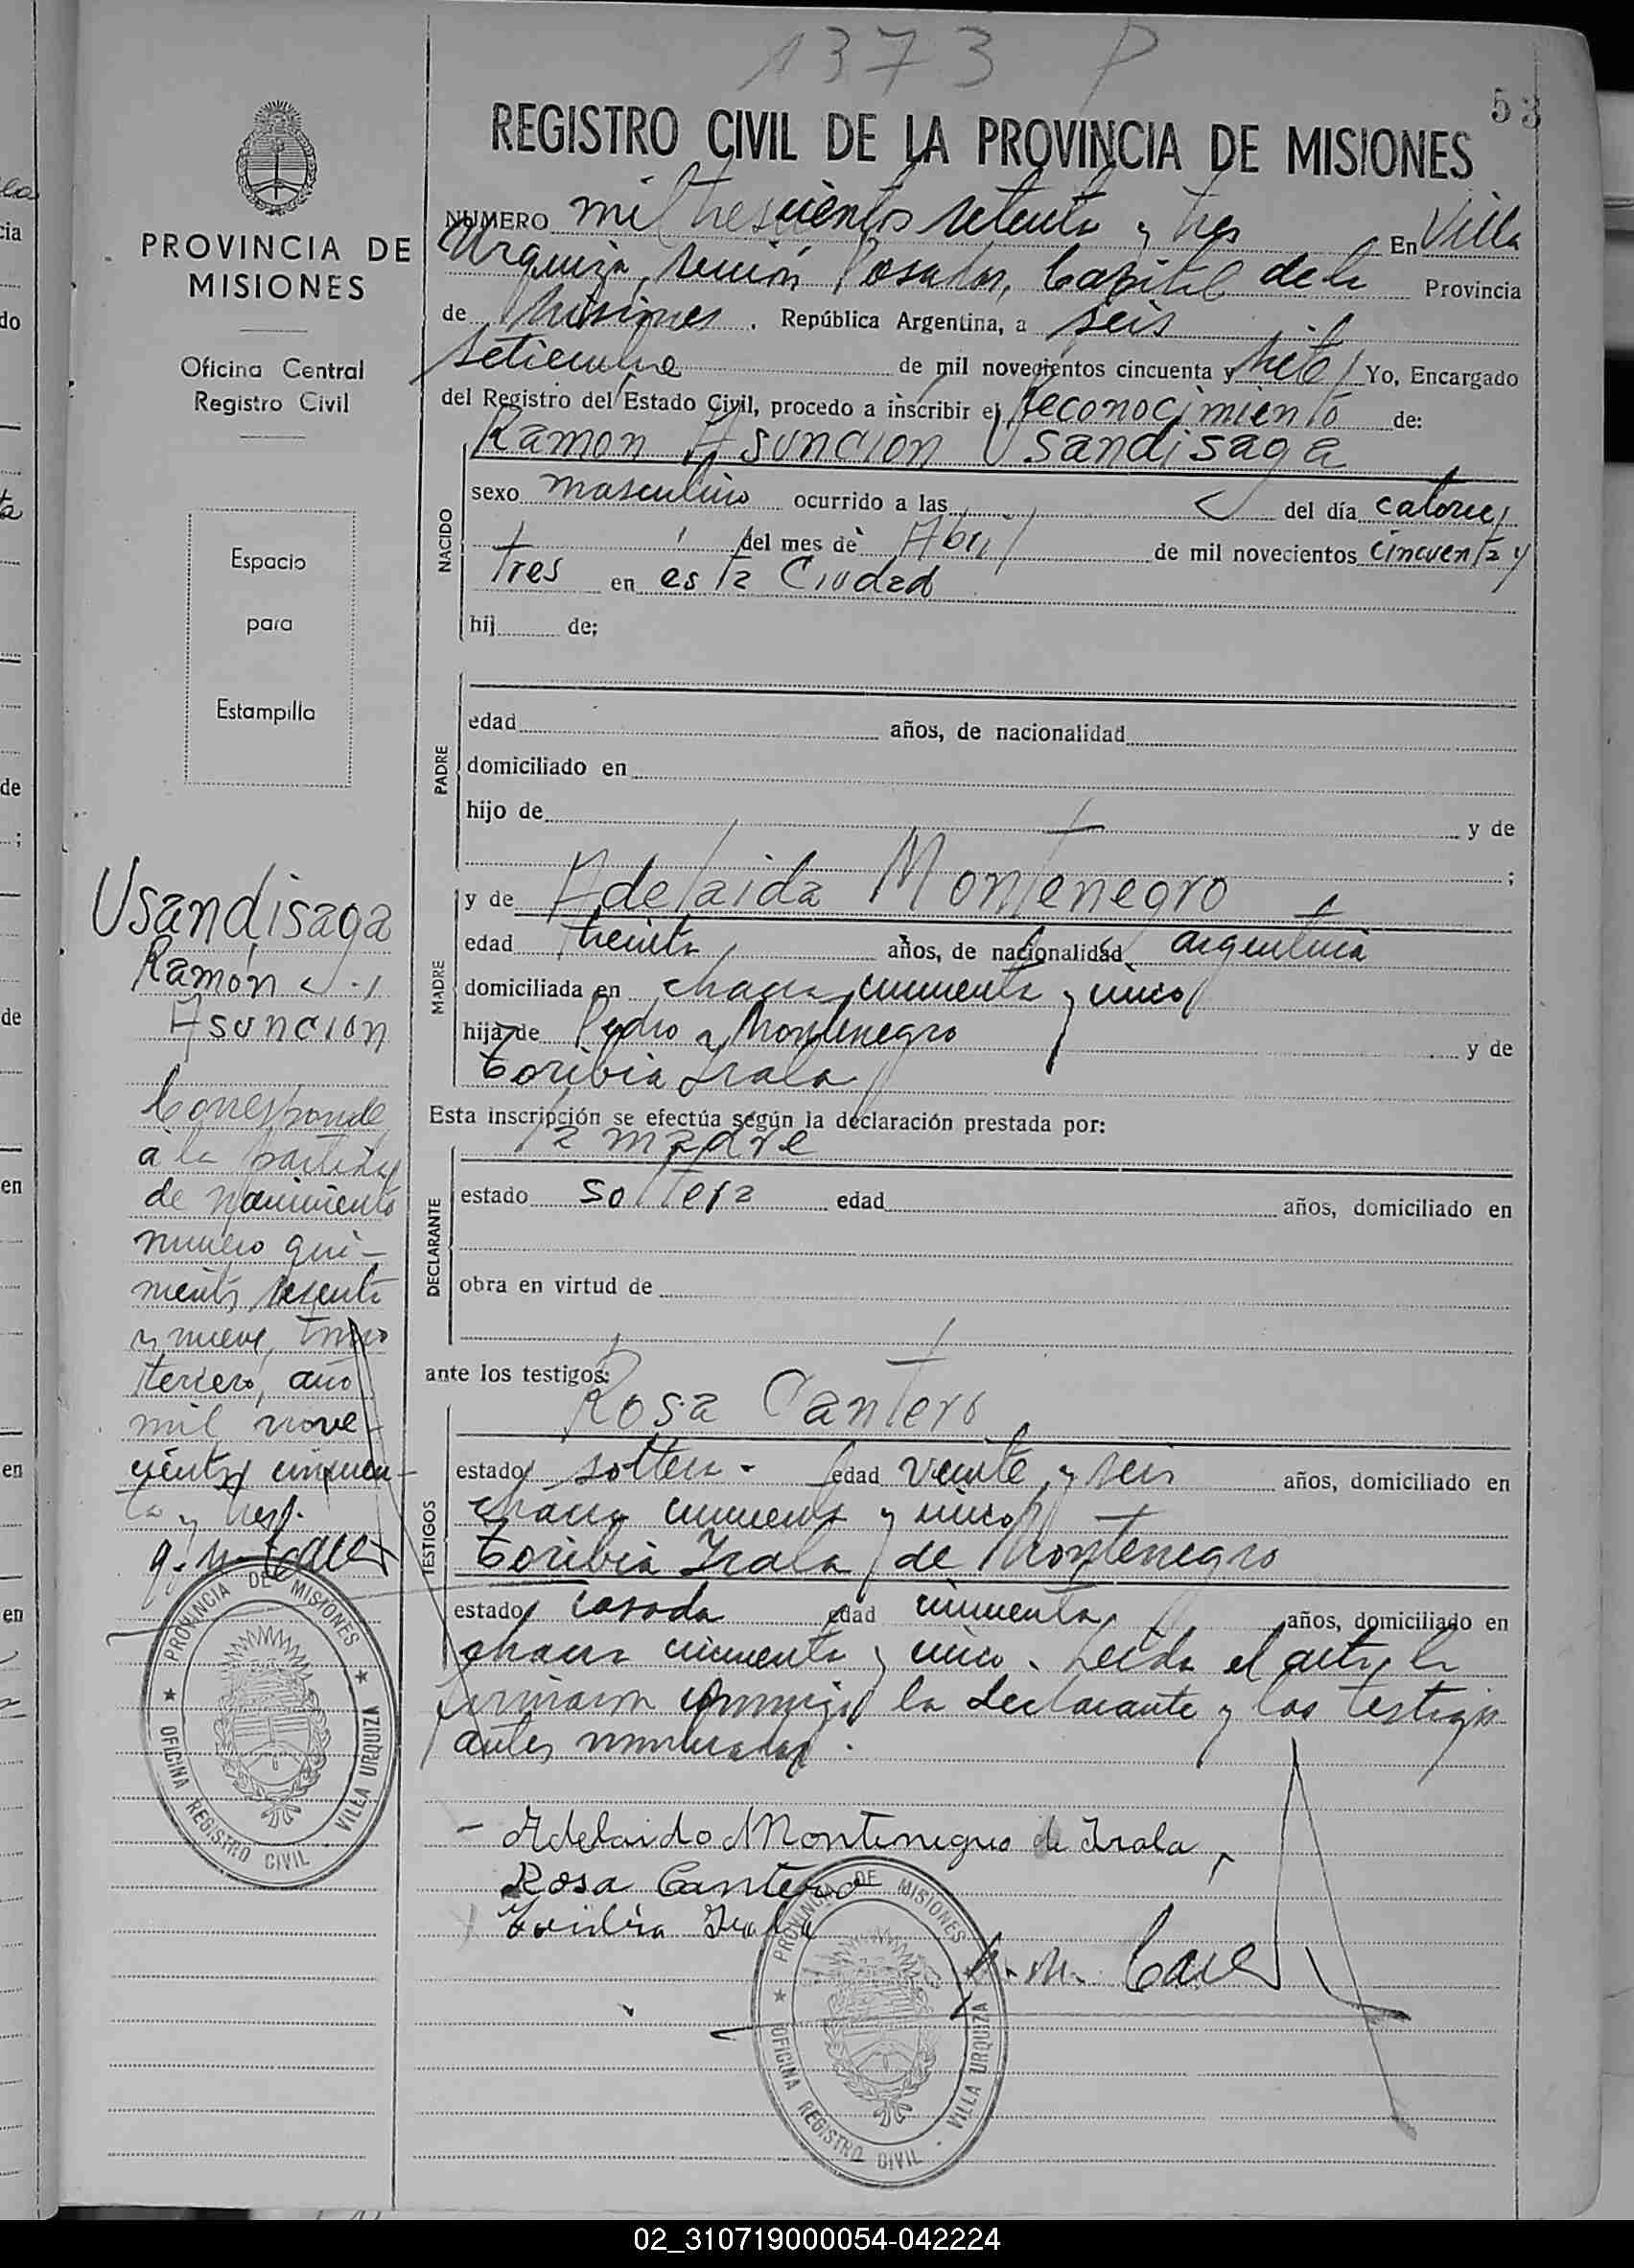 1373 P
53
REGISTRO CIVIL DE LA PROVINCIA DE MISIONES
PROVINCIA DE
MISIONES
Oficina Central
Registro Civil
Espacio
para
Estampilla
Usandisaga
Ramón
Asuncion
Corresponde
a la partida
de nacimiento
numero qui-
nientos sesenta
y nueve, tomo
tercero, año
mil nove-
cientos cincuen-
ta y tres.
PROVINCIA DE MISIONES
OFICINA REGISTRO CIVIL · VILLA URQUIZA
NUMERO mil trescientos setenta y tres En Villa
Urquiza, sección Posadas, Capital de la Provincia
de Misiones . República Argentina, a seis
setiembre de mil novecientos cincuenta y siete Yo, Encargado
del Registro del Estado Civil, procedo a inscribir el Reconocimiento de:
Ramon Asuncion Usandisaga
NACIDO
sexo masculino ocurrido a las del día catorce
del mes de Abril de mil novecientos cincuenta y
tres en esta Ciudad
hij de;
PADRE
edad años, de nacionalidad
domiciliado en
hijo de y de
;
MADRE
y de Adelaida Montenegro
edad treinta años, de nacionalidad argentina
domiciliada en chacra cincuenta y cinco
hija de Pedro Montenegro y de
Toribia Irala
Esta inscripción se efectúa según la declaración prestada por:
la madre
DECLARANTE
estado soltera edad años, domiciliado en
obra en virtud de
ante los testigos:
Rosa Cantero
TESTIGOS
estado soltera - edad veinte y seis años, domiciliado en
chacra cincuenta y cinco
Toribia Irala de Montenegro
estado casada edad cincuenta años, domiciliado en
chacra cincuenta y cinco. Leida el acta, la
firmaron conmigo la declarante y los testigos
antes nombrados.
- Adelaido Montenegro de Irala
Rosa Cantero
Toribia Irala
PROVINCIA DE MISIONES
OFICINA REGISTRO CIVIL · VILLA URQUIZA
02_310719000054-042224